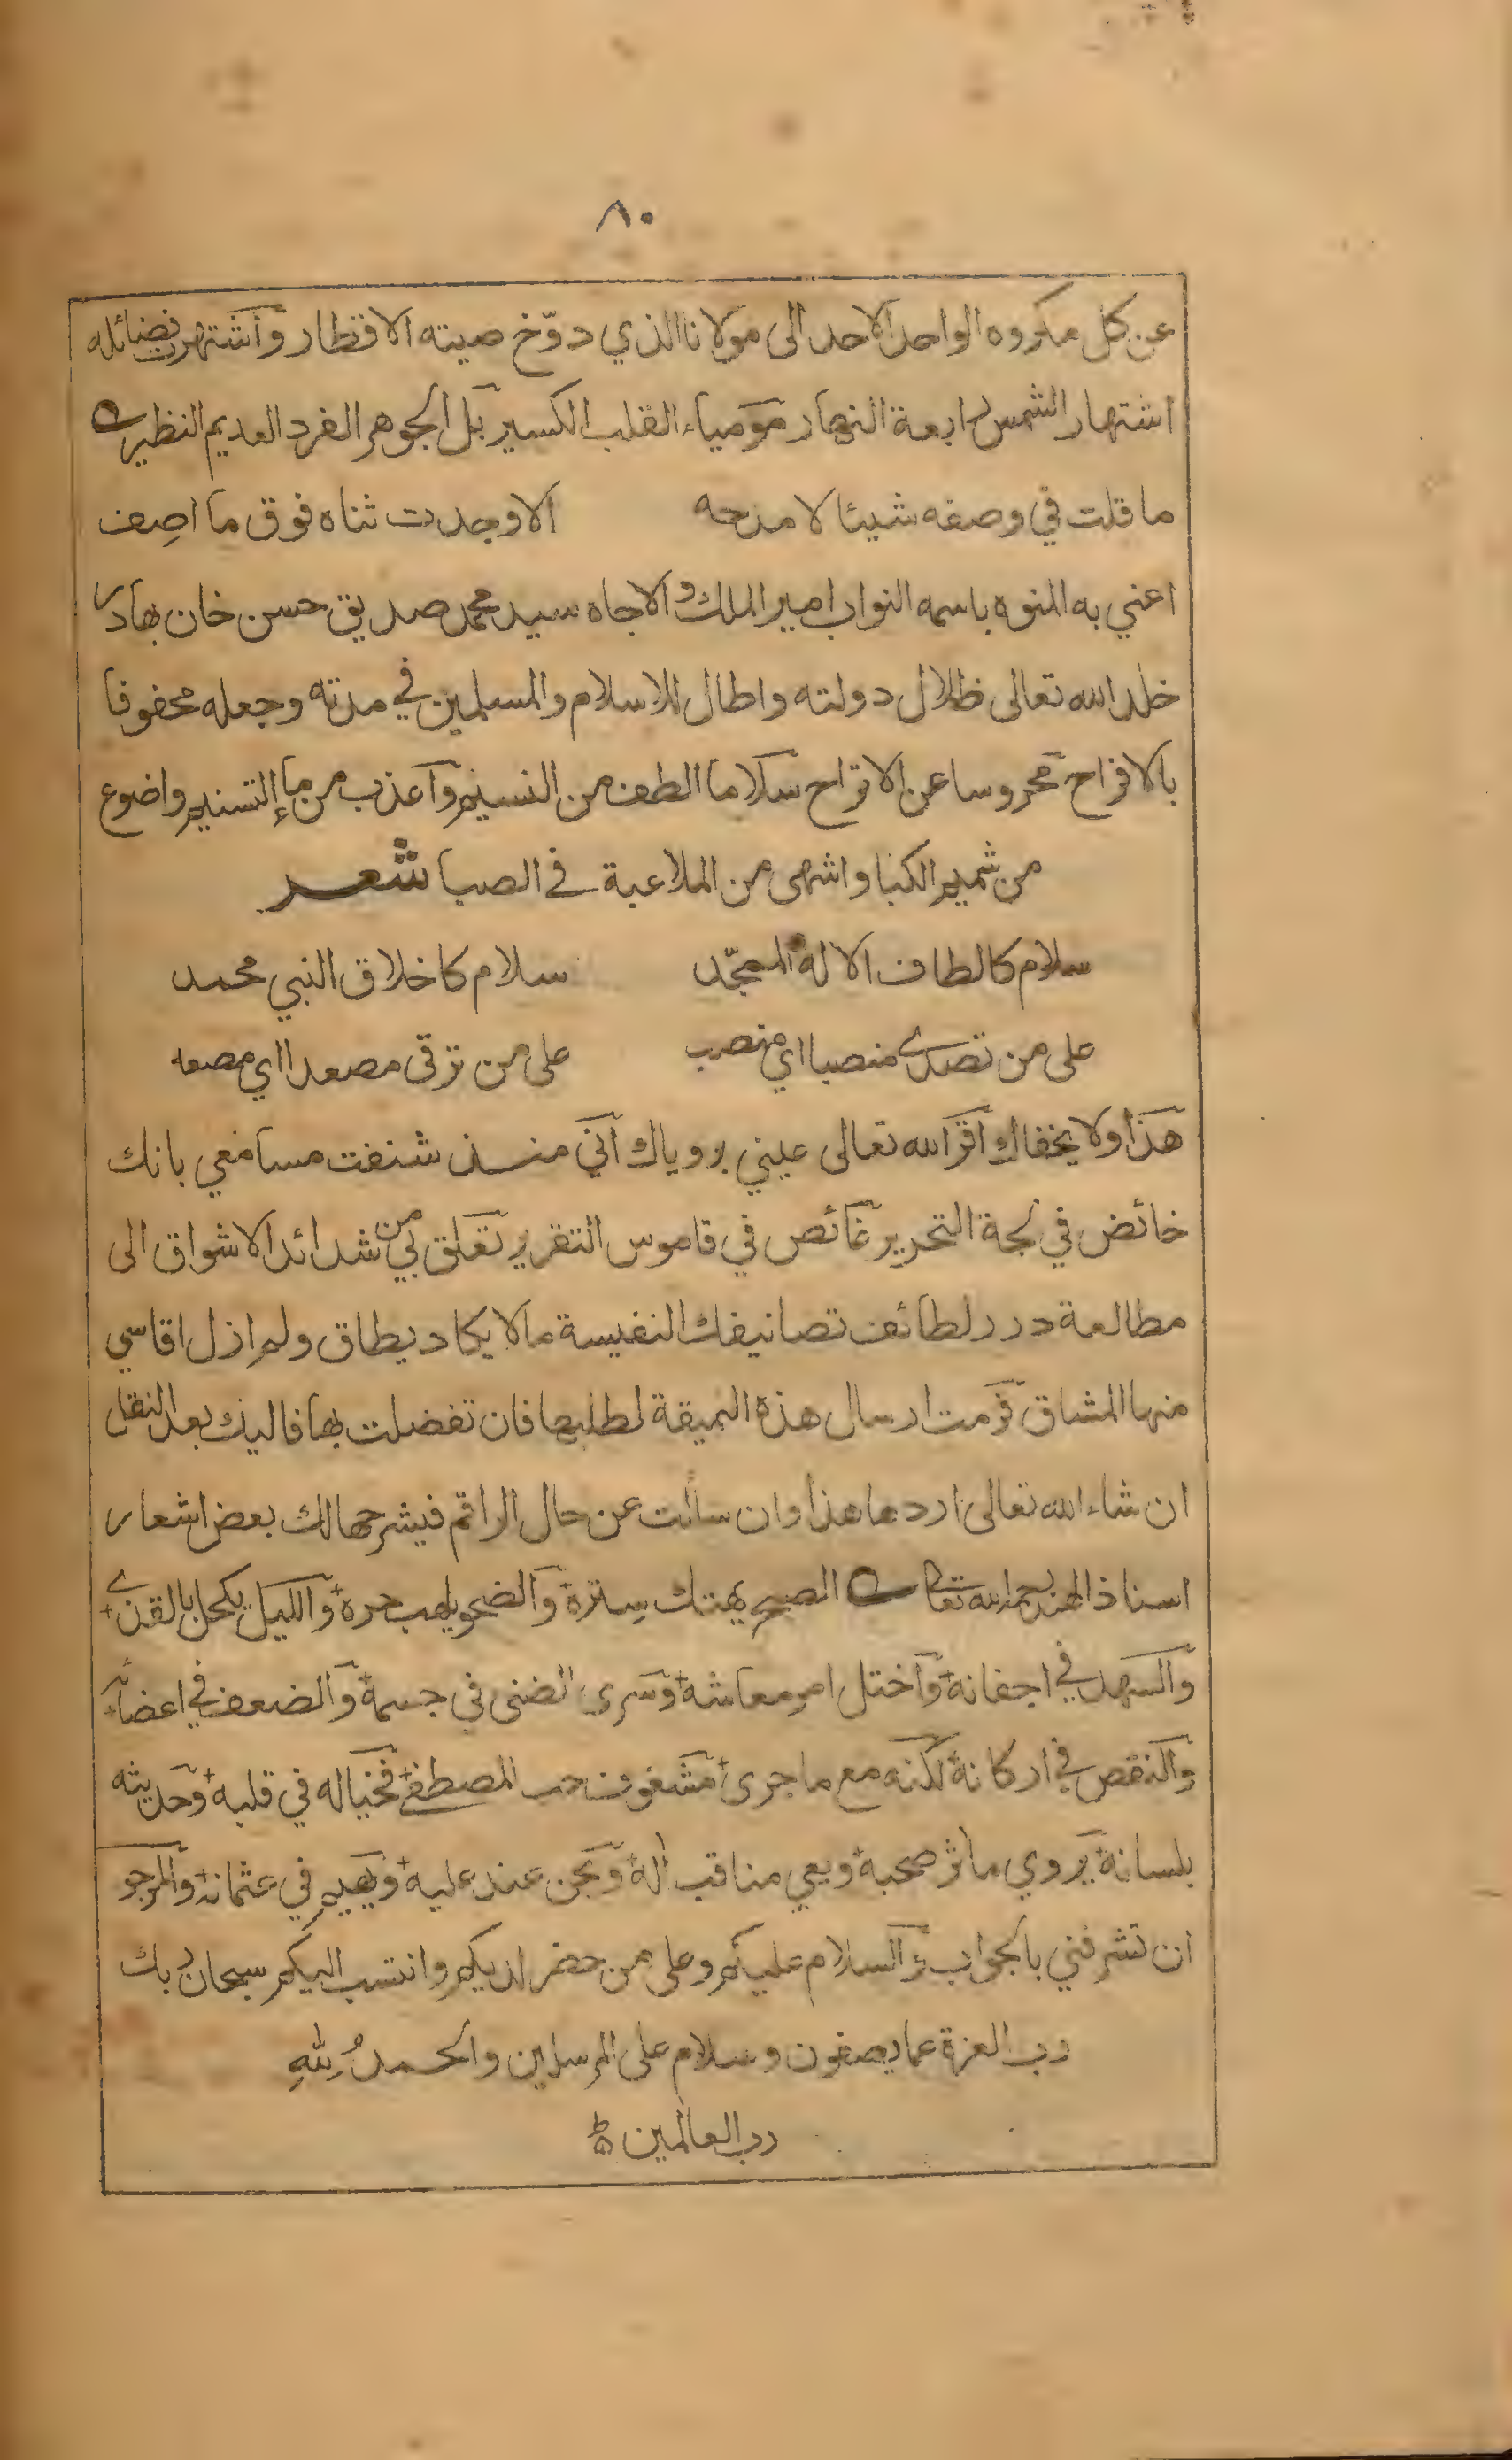 ٨٠
عن كل مكروه الواحد الاحد الى مولانا الذي دوّخ صيته الاقطار وآشتهرت فضائله
اشتهار الشمس رابعة النهار مومياء القلب الكسير بل الجوهر الفرد العديم النظير
ما قلت في وصفه شيئا لامدحه الا وجدت ثناه فوق ما اصِف
اعني به المنوه باسمه النواب امير الملك والاجاه سيد محمد صديق حسن خان بهادر
خلد الله تعالى ظلال دولته واطال للاسلام والمسلمين في مدته وجعله محفوفا
بالافراح محروسا عن الاتراح سلاما الطف من النسيم وآعذب من ماء التسنيم واضوع
من شميم الكبا واشهى من الملاعبة في الصبا شعر
سلام كالطاف الاله الممجّد سلام كاخلاق النبي محمد
على من تصدى منصبا اي منصب على من ترقى مصعدا اي مصعد
هذا ولا يخفاك اقر الله تعالى عيني بروياك آني منذ شنفت مسامعي بانك
خائض في لجة التحرير غائص في قاموس التقرير تعلق بي من شدائد الاشواق الى
مطالعة درر لطائف تصانيفك النفيسة ما لا يكاد يطاق ولم ازل اقاسي
منها المشاق فرمت ارسال هذه النميقة لطلبها فان تفضلت بها فاليك بعد النقل
ان شاء الله تعالى اردها هذا وان سألت عن حال الراقم فيشرحها لك بعض اشعار
استاذ الهند رحمه الله تعالى الصبح يهتك سِترهٔ وآلضحو يلهب حرهٔ وآلليل يكحل بالقذى
وآلسهد في اجفانهٔ وآختل امر معاشهٔ وسرى الضنى في جسمهٔ وآلضعف في اعضائه
وآلنقص في اركانهٔ لكنه مع ما جرى مشغوف حب المصطفى فخياله في قلبه وحديثه
بلسانهٔ يروي مآثر صحبهٔ ويعي مناقب آله ويحن عند عليه ويهيم في عثمانه وآلمرجو
ان تشرفني بالجواب وآلسلام عليكم وعلى من حضر لديكم وانتسب اليكم سبحان ربك
رب العزة عما يصفون وسلام على المرسلين والحمدُ لِلّٰهِ
رب العالمين